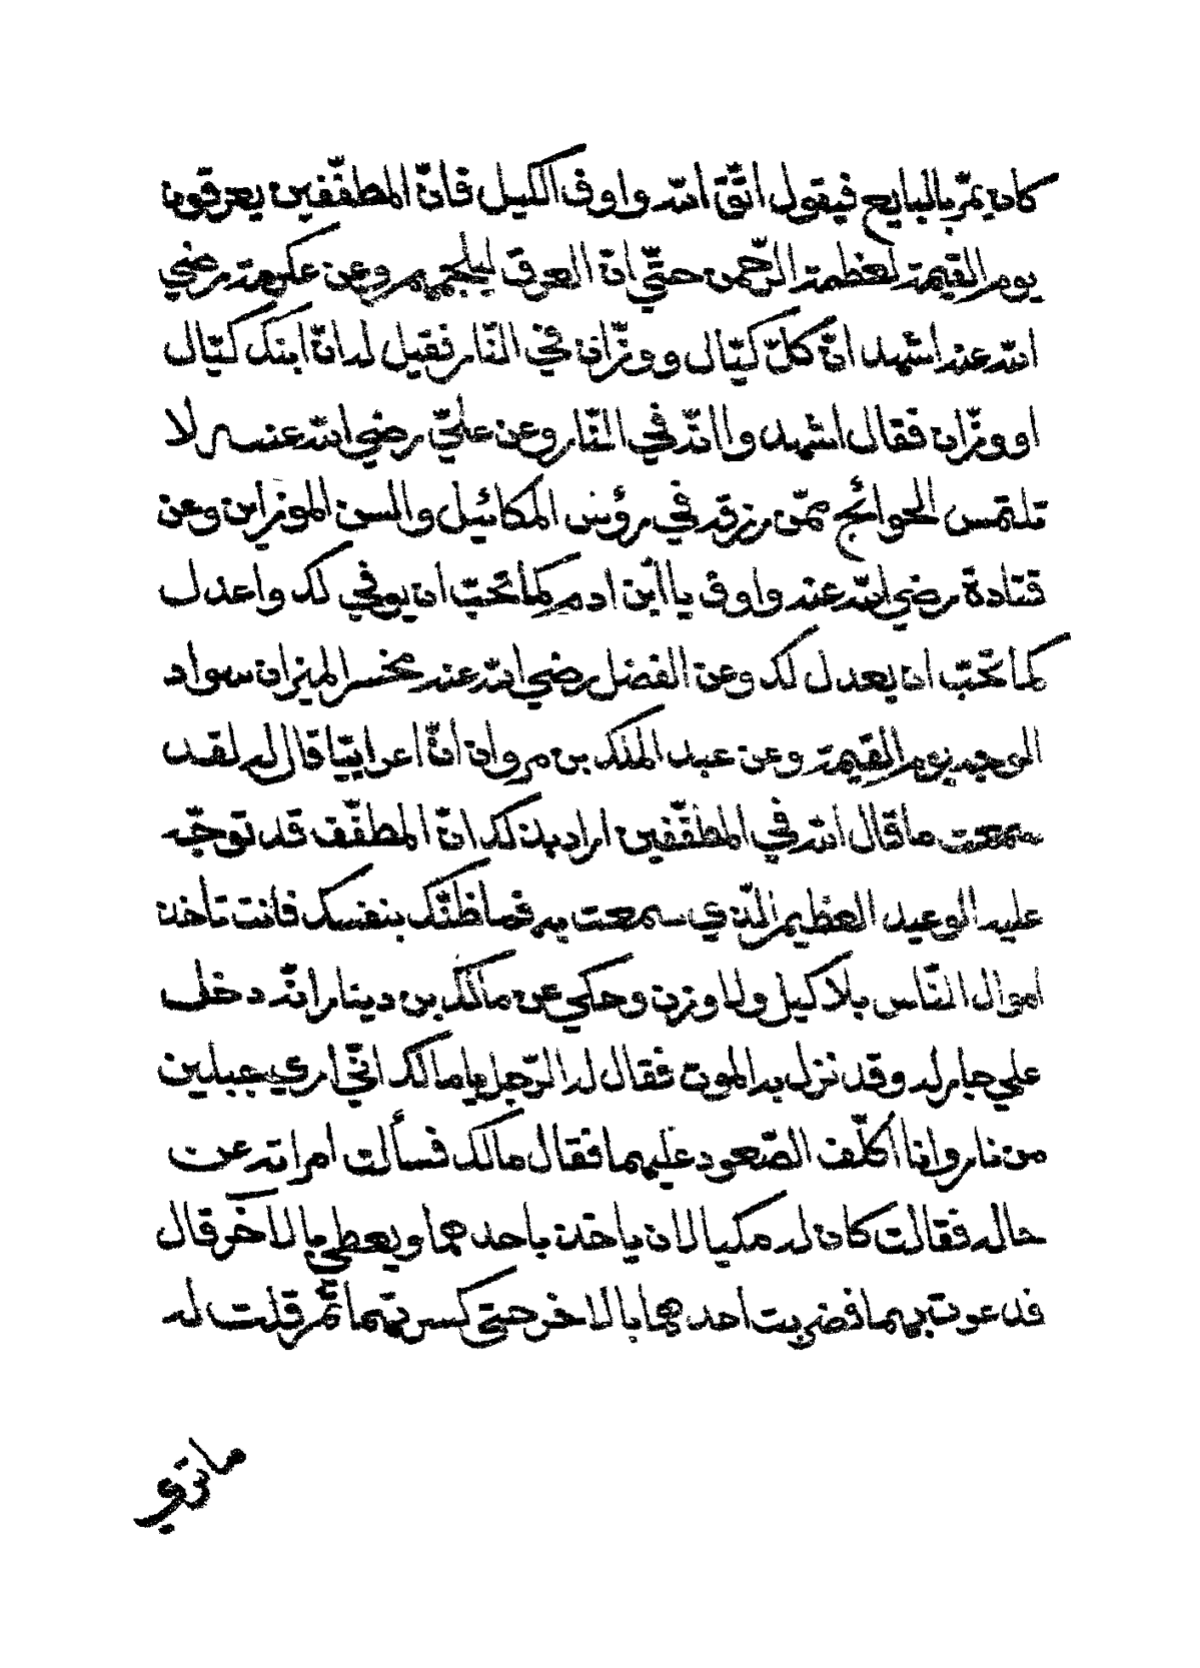 كان يمرّ بالبايع فيقول اتّق الله واوف الكيل فانّ المطفّفين يعرقون
يوم القيمة لعظمة الرّحمن حتّي ان العرق ليلجمهم وعن عكرمة رضي
الله عنه اشهد انّ كلّ كيّال ووزّان في النّار فقيل له انّ ابنك كيّال
او وزّان فقال اشهد والنّه في النّار وعن عليّ رضي الله عنه لا
تلتمس الحوائج ممّن رزقه في رؤس المكائيل والسن الموزاين وعن
قتادة رضي الله عنه واوف يا ابن ادم كما تحبّ ان يوفي لك واعدل
كما تحبّ ان يعدل لك وعن الفضل رضي الله عنه مخسر الميزان سواد
الوجه يوم القيمة وعن عبد الملك بن مروان انّ اعرابيّا قال له لقد
سمعت ما قال الله في المطفّفين اراد بذلك انّ المطفّف قد توجّه
عليه الوعيد العظيم الّذي سمعت به فما ظنّك بنفسك فانت تاخذ
اموال النّاس بلا كيل ولا وزن وحكي عن مالك بن دينار انّه دخل
علي جار له وقد نزل به الموت فقال له الرّجل يا مالك انّي اري جبلين
من نار وانا اكلّف الصّعود عليهما فقال مالك فسألت امراته عن
حاله فقالت كان له مكيالان ياخذ باحدهما ويعطي بالآخر قال
فدعوت بهما فضربت احدهما بالاخر حتّي كسرتهما ثمّ قلت له
ماتري